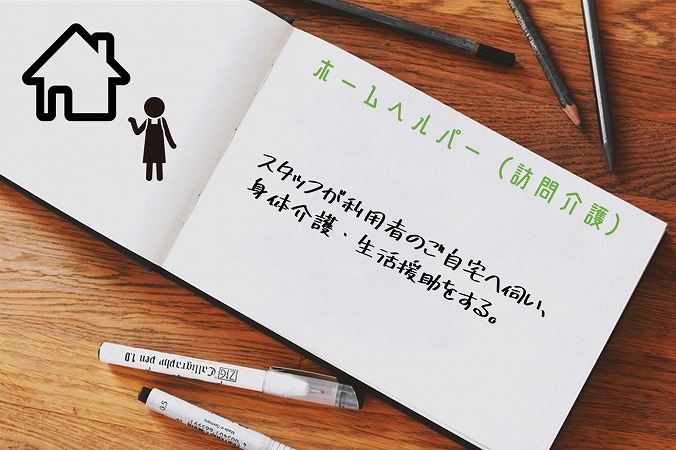 ホームヘルパー（訪問介護）
スタッフが利用者のご自宅へ伺い、
身体介護・生活援助をする。
ZIG Calligraphy pen 1.0
0.5
Made in Germany